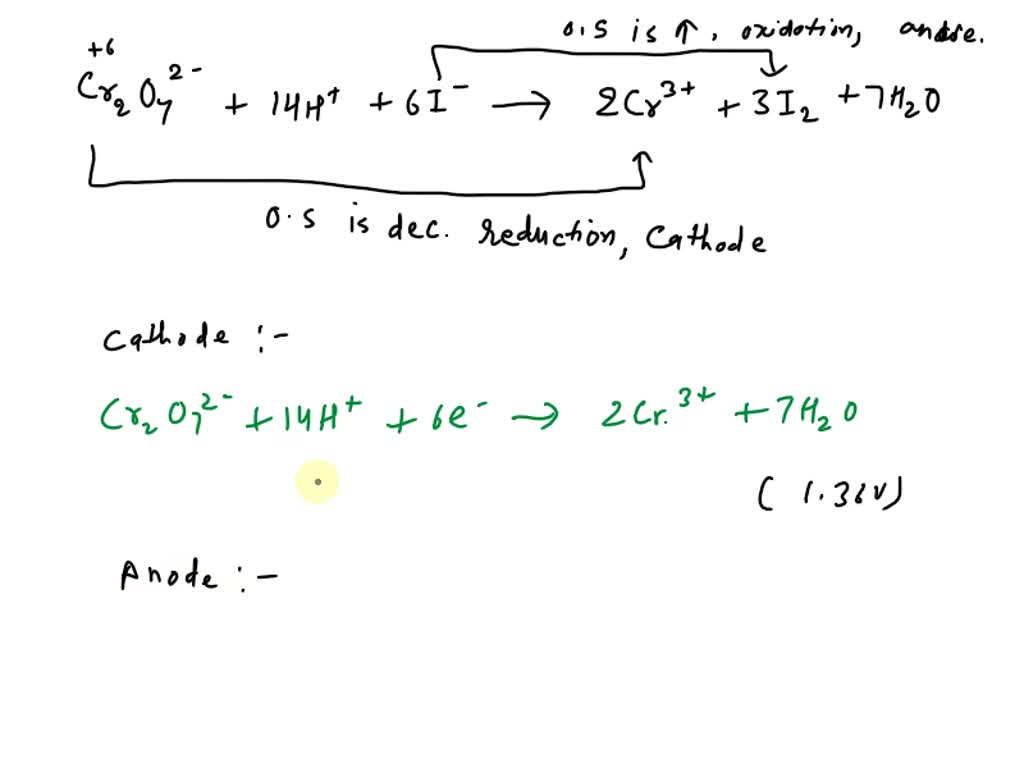 O.S is ↑, oxidation, anode.
+6
Cr₂O₇²⁻ + 14H⁺ + 6I⁻ → 2Cr³⁺ + 3I₂ + 7H₂O
O.S is dec. reduction, Cathode
Cathode :-
Cr₂O₇²⁻ + 14H⁺ + 6e⁻ → 2Cr.³⁺ + 7H₂O
(1.36V)
Anode :-